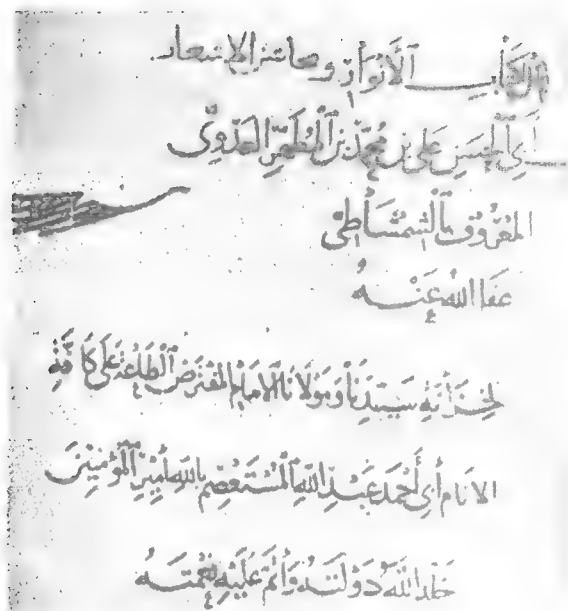 الكتاب الأَنْوَارِ ومحاسن الاشعار
أَبِي ٱلْحَسَنِ عَلِيّ بْنِ مُحَمَّدِ بْنِ ٱلْمُطَهَّرِ ٱلْعَدَوِيّ
المَعْرُوف بِٱلشِّمْشَاطِيّ
عَفَا اللهُ عَنْهُ
لِخِزَانَةِ سَيِّدِنَا وَمَوْلَانَا الإِمَامِ المُفْتَرَضِ ٱلطَّاعَةِ عَلَى كَافَّةِ
الانَامِ أَبِي أَحْمَدَ عَبْدِ اللهِ ٱلْمُسْتَعْصِمِ بِاللهِ أَمِيرِ ٱلْمُؤْمِنِينَ
خَلَّدَ اللهُ دَوْلَتَهُ وَأَتَمَّ عَلَيْهِ نِعْمَتَهُ